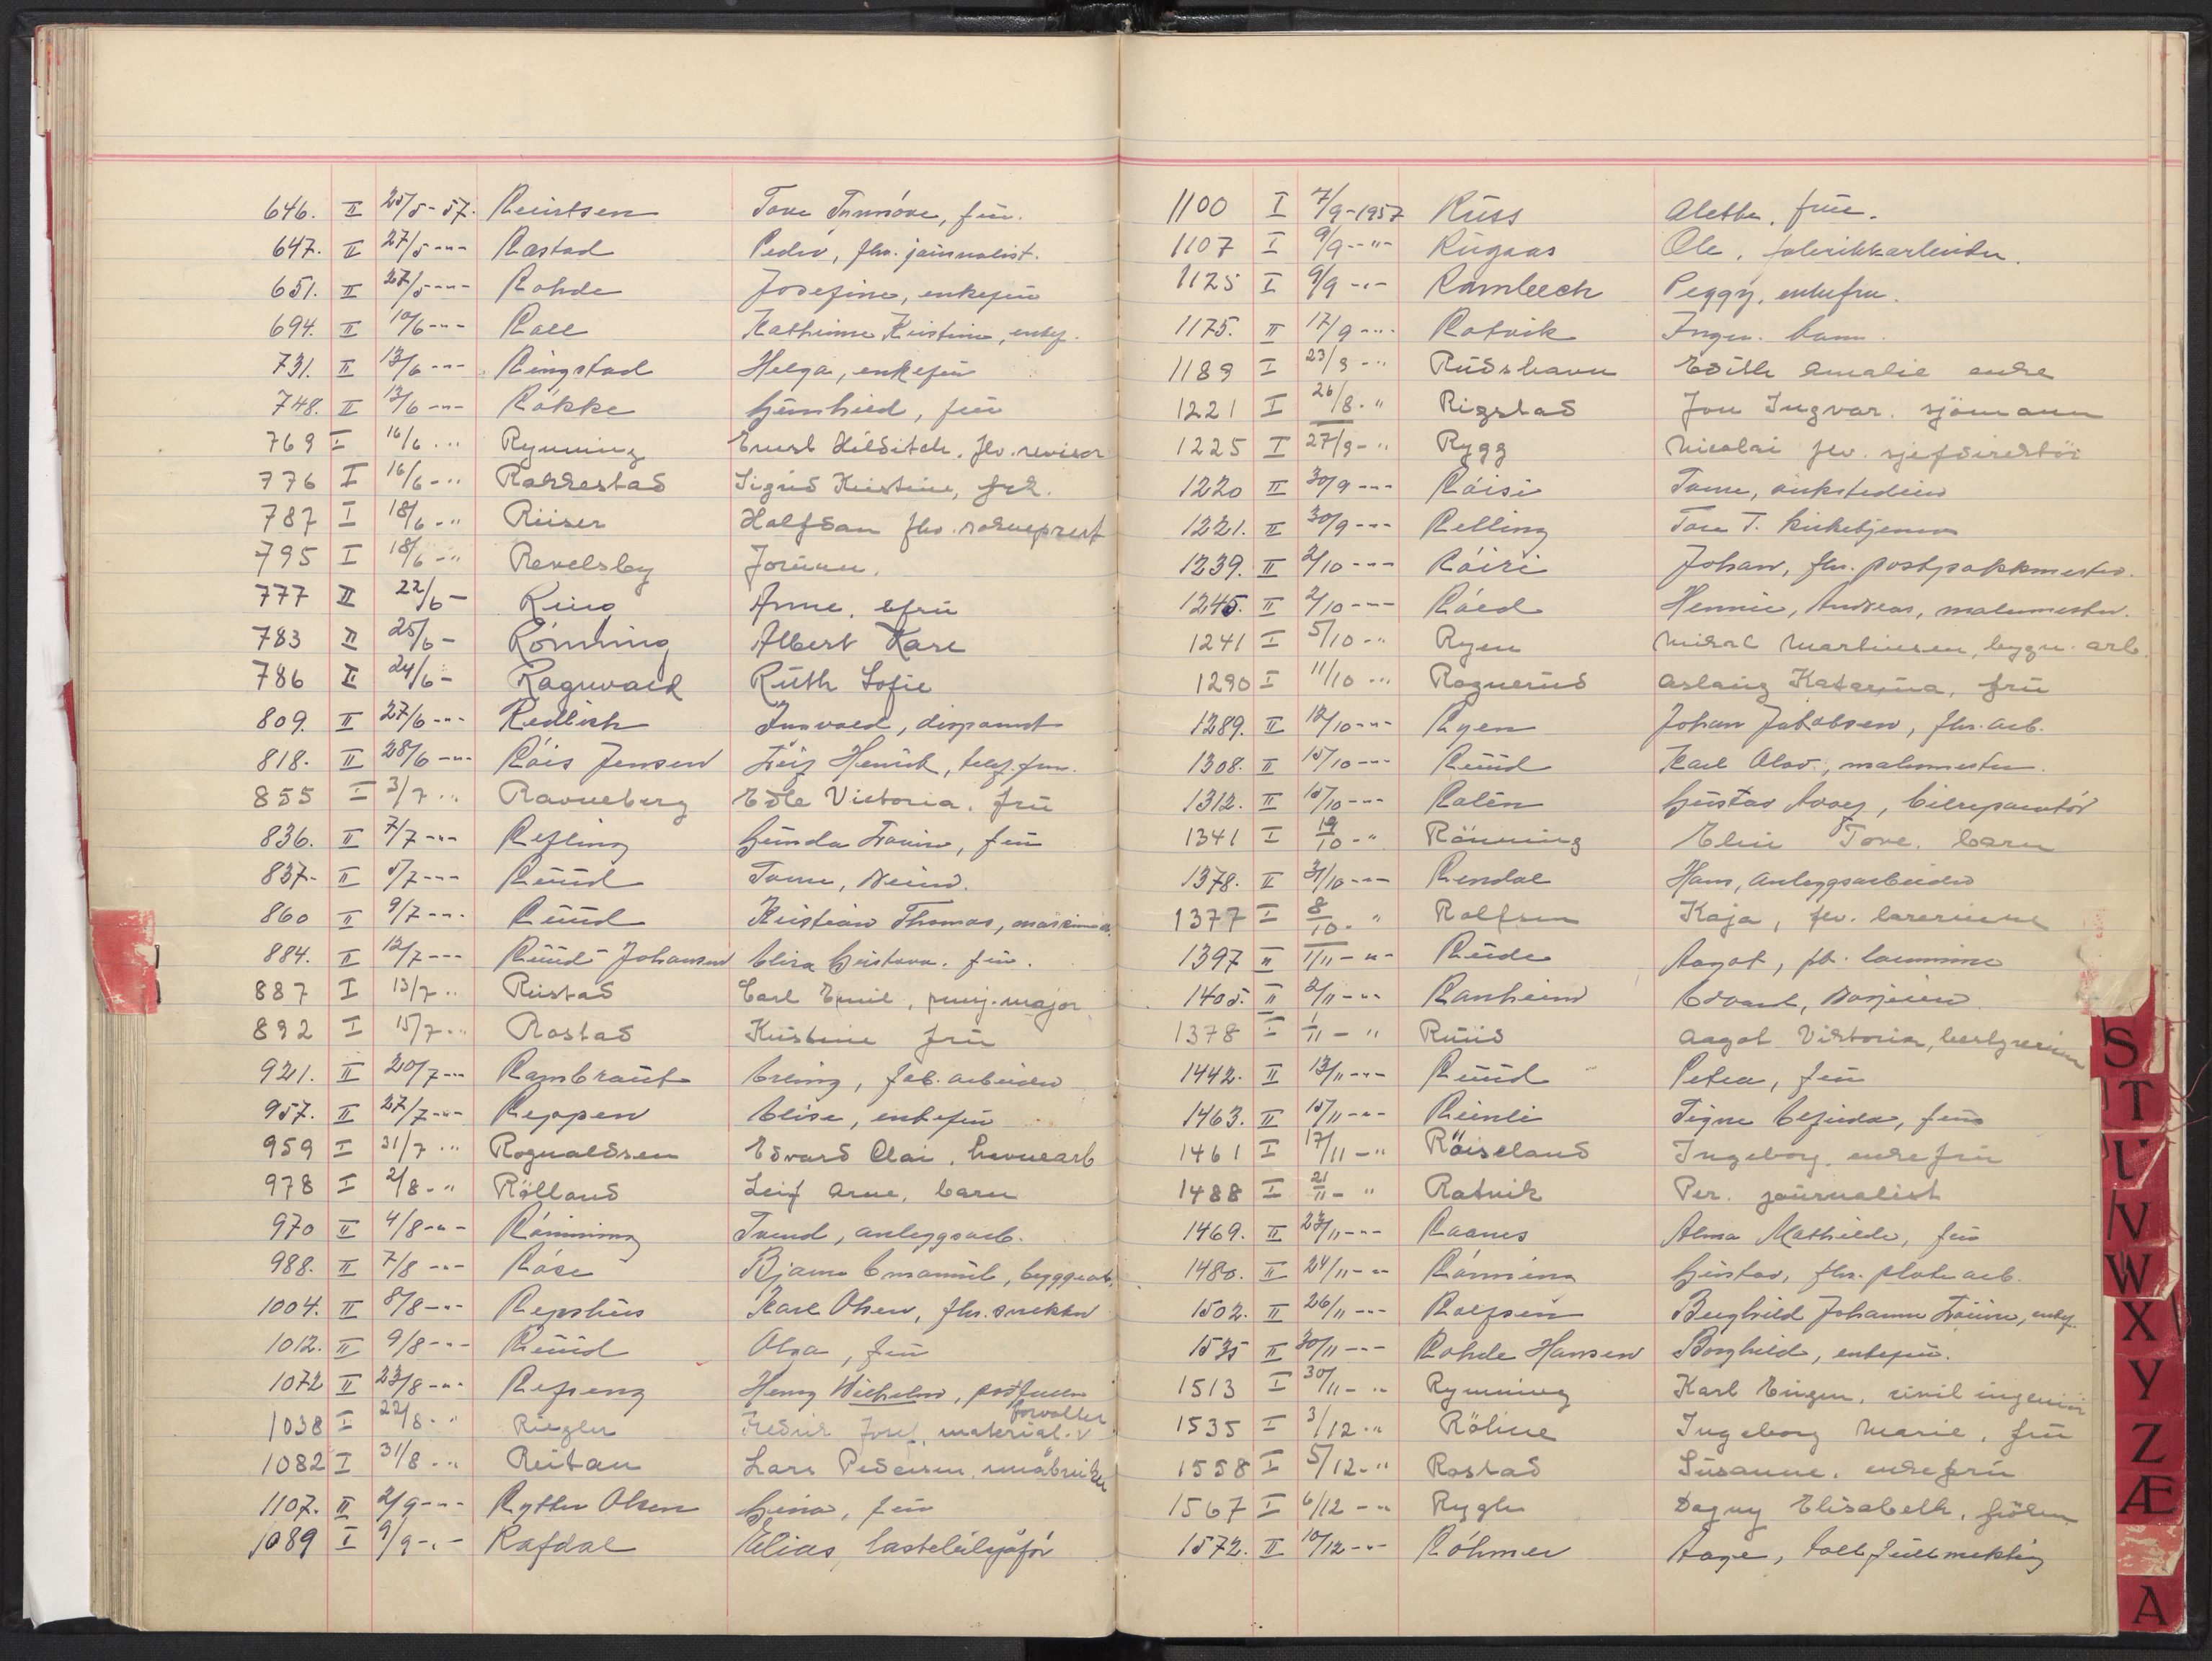 646. II 25/5-57. Knutsen Tove Synnöve, frü.
647. II 27/5 -"- Rastad Peder, fhv. joürnalist.
651. II 27/5 -"- Rohde Josefine, enkefrü
694. II 10/6 -"- Roll Kathinne Kristine, enkef.
731. II 13/6 -"- Ringstad Helga, enkefrü
748. II 13/6 -"- Rökke Günhild, frü
769 I 16/6 -"- Rynning Ernst Hilditch. fhv. revisor
776 I 16/6 -"- Rakkestad Sigrid Kristine, frk.
787 I 18/6 -" Riiser Halfdan fhv. sokneprest
795 I 18/6 -" Revelsby Jorünn.
777 II 22/6 - Ring Anne, efrü
783 II 25/6 - Rönning Albert Kare
786 II 24/6 - Ragnvald Rüth Sofie
809. II 27/6 -"- Redlich Ingvald, disponent
818. II 28/6 -"- Röis Jensen Leif Henrik, telef.
855 I 3/7 -" Ravneberg Edle Victoria. frü
836. II 7/7 -"- Refling Günda Loüise, frü
837. II 5/7 -"- Rüüd
860 II 9/7 -"- Rüüd Kristian Thomas,
884. II 12/7 -"- Rüüd Johansen Elisa Güstava. frü.
887 I 13/7 -" Rüstad Carl Emil, major
892 I 15/7 -" Rostad Kristine frü
921. II 20/7 -"- Rambraüt Erling, fab. arbeider
957. II 27/7 -"- Reppen Elise, enkefrü
959 I 31/7 -" Rognaldsen Edvard Olai. havnearb
978 I 2/8 -" Rölland Leif Arne, barn
970 II 4/8 -"- Rönning Trond, anleggsarb.
988. II 7/8 -"- Röse Bjarne Emanüel, byggearb.
1004. II 8/8 -"- Repshüs Karl Olsen, fhv. snekker
1012. II 9/8 -"- Rüüd Olga, frü
1072 II 23/8 -"- Refseng Henry Wilhelm,
1038 I 22/8 -" Riegler Fredrik Josef, material. v forvalter
1082 I 31/8 -" Reitan Lars Pedersen, småbrüker
1107. II 2/9 -"- Rytter Olsen Gina, frü
1089 I 9/9 -"- Rafdal Elias, lastebilsjåför
1100 I 7/9-1957 Rüss Alethe, früe.
1107 I 9/9 -"- Rügaas Ole, fabrikkarbeider.
1125 I 9/9 -"- Rambech Peggy, enkefru.
1175. II 17/9 -"- Rotvik Inger. barn.
1189 I 23/9 -" Rüdshavn Edith Amalie enke
1221 I 26/8 -" Rigstad Jon Ingvar. sjömann
1225 I 27/9 -" Rygg Nicolai fhv. sjefdirektör
1220 II 30/9 -"- Röisi
1221. II 30/9 -"- Relling Tore T. kirketjener
1239. II 2/10 -"- Röiri Johan, fhv. postpakkmester.
1245. II 2/10 -"- Röed Hennie, Andreas, malermester.
1241 I 5/10 -" Ryen Mikal Martinsen, bygn. arb.
1290 I 11/10 -" Rognerüd Aslaüg Katarina, frü
1289. II 12/10 -"- Ryen Johan Jakobsen, fhv. arb.
1308. II 15/10 -"- Rüüd Karl Olav., malermester.
1312. II 15/10 -"- Rolén Güstav Georg, bilreparatör
1341 I 19/10 -" Rönning Elin Tove. barn
1378. II 31/10 -"- Rendal Hans, anleggsarbeider
1377 I 8/10 -" Rolfsen Kaja, fhv. lærerinne
1397 II 1/11 -"- Rüde Aagot,
1405. II 2/11 -"- Ranheim Edvard,
1378 I 1/11 -" Rüüd Aagot Viktoria, bestyrerinne
1442. II 13/11 -"- Rüüd Petra, frü
1463. II 15/11 -"- Rünli Signe Elfrida, frü
1461 I 17/11 -" Röiseland Ingeborg enkefrü
1488 I 21/11 -" Ratvik Per. joürnalist
1469. II 23/11 -"- Raanes Alma Mathilde, frü
1480. II 24/11 -"- Rönning Güstav, fhv. platearb.
1502. II 26/11 -"- Rolfsen Berghild Johanne Loüise, enkef.
1535 II 30/11 -"- Rohde Hansen Borghild, enkefrü.
1513 I 30/11 -" Rynning Karl Eügen, sivil ingeniör
1535 I 3/12 -" Röhne Ingeborg Marie, frü
1558 I 5/12 -" Rostad Süsanne. enkefrü
1567 I 6/12 -" Rygh Dagny Elisabeth. fröken
1572. II 10/12 -"- Röhmer Aage, tollfüllmektig
S
T
U
V
W
X
Y
Z
Æ
A